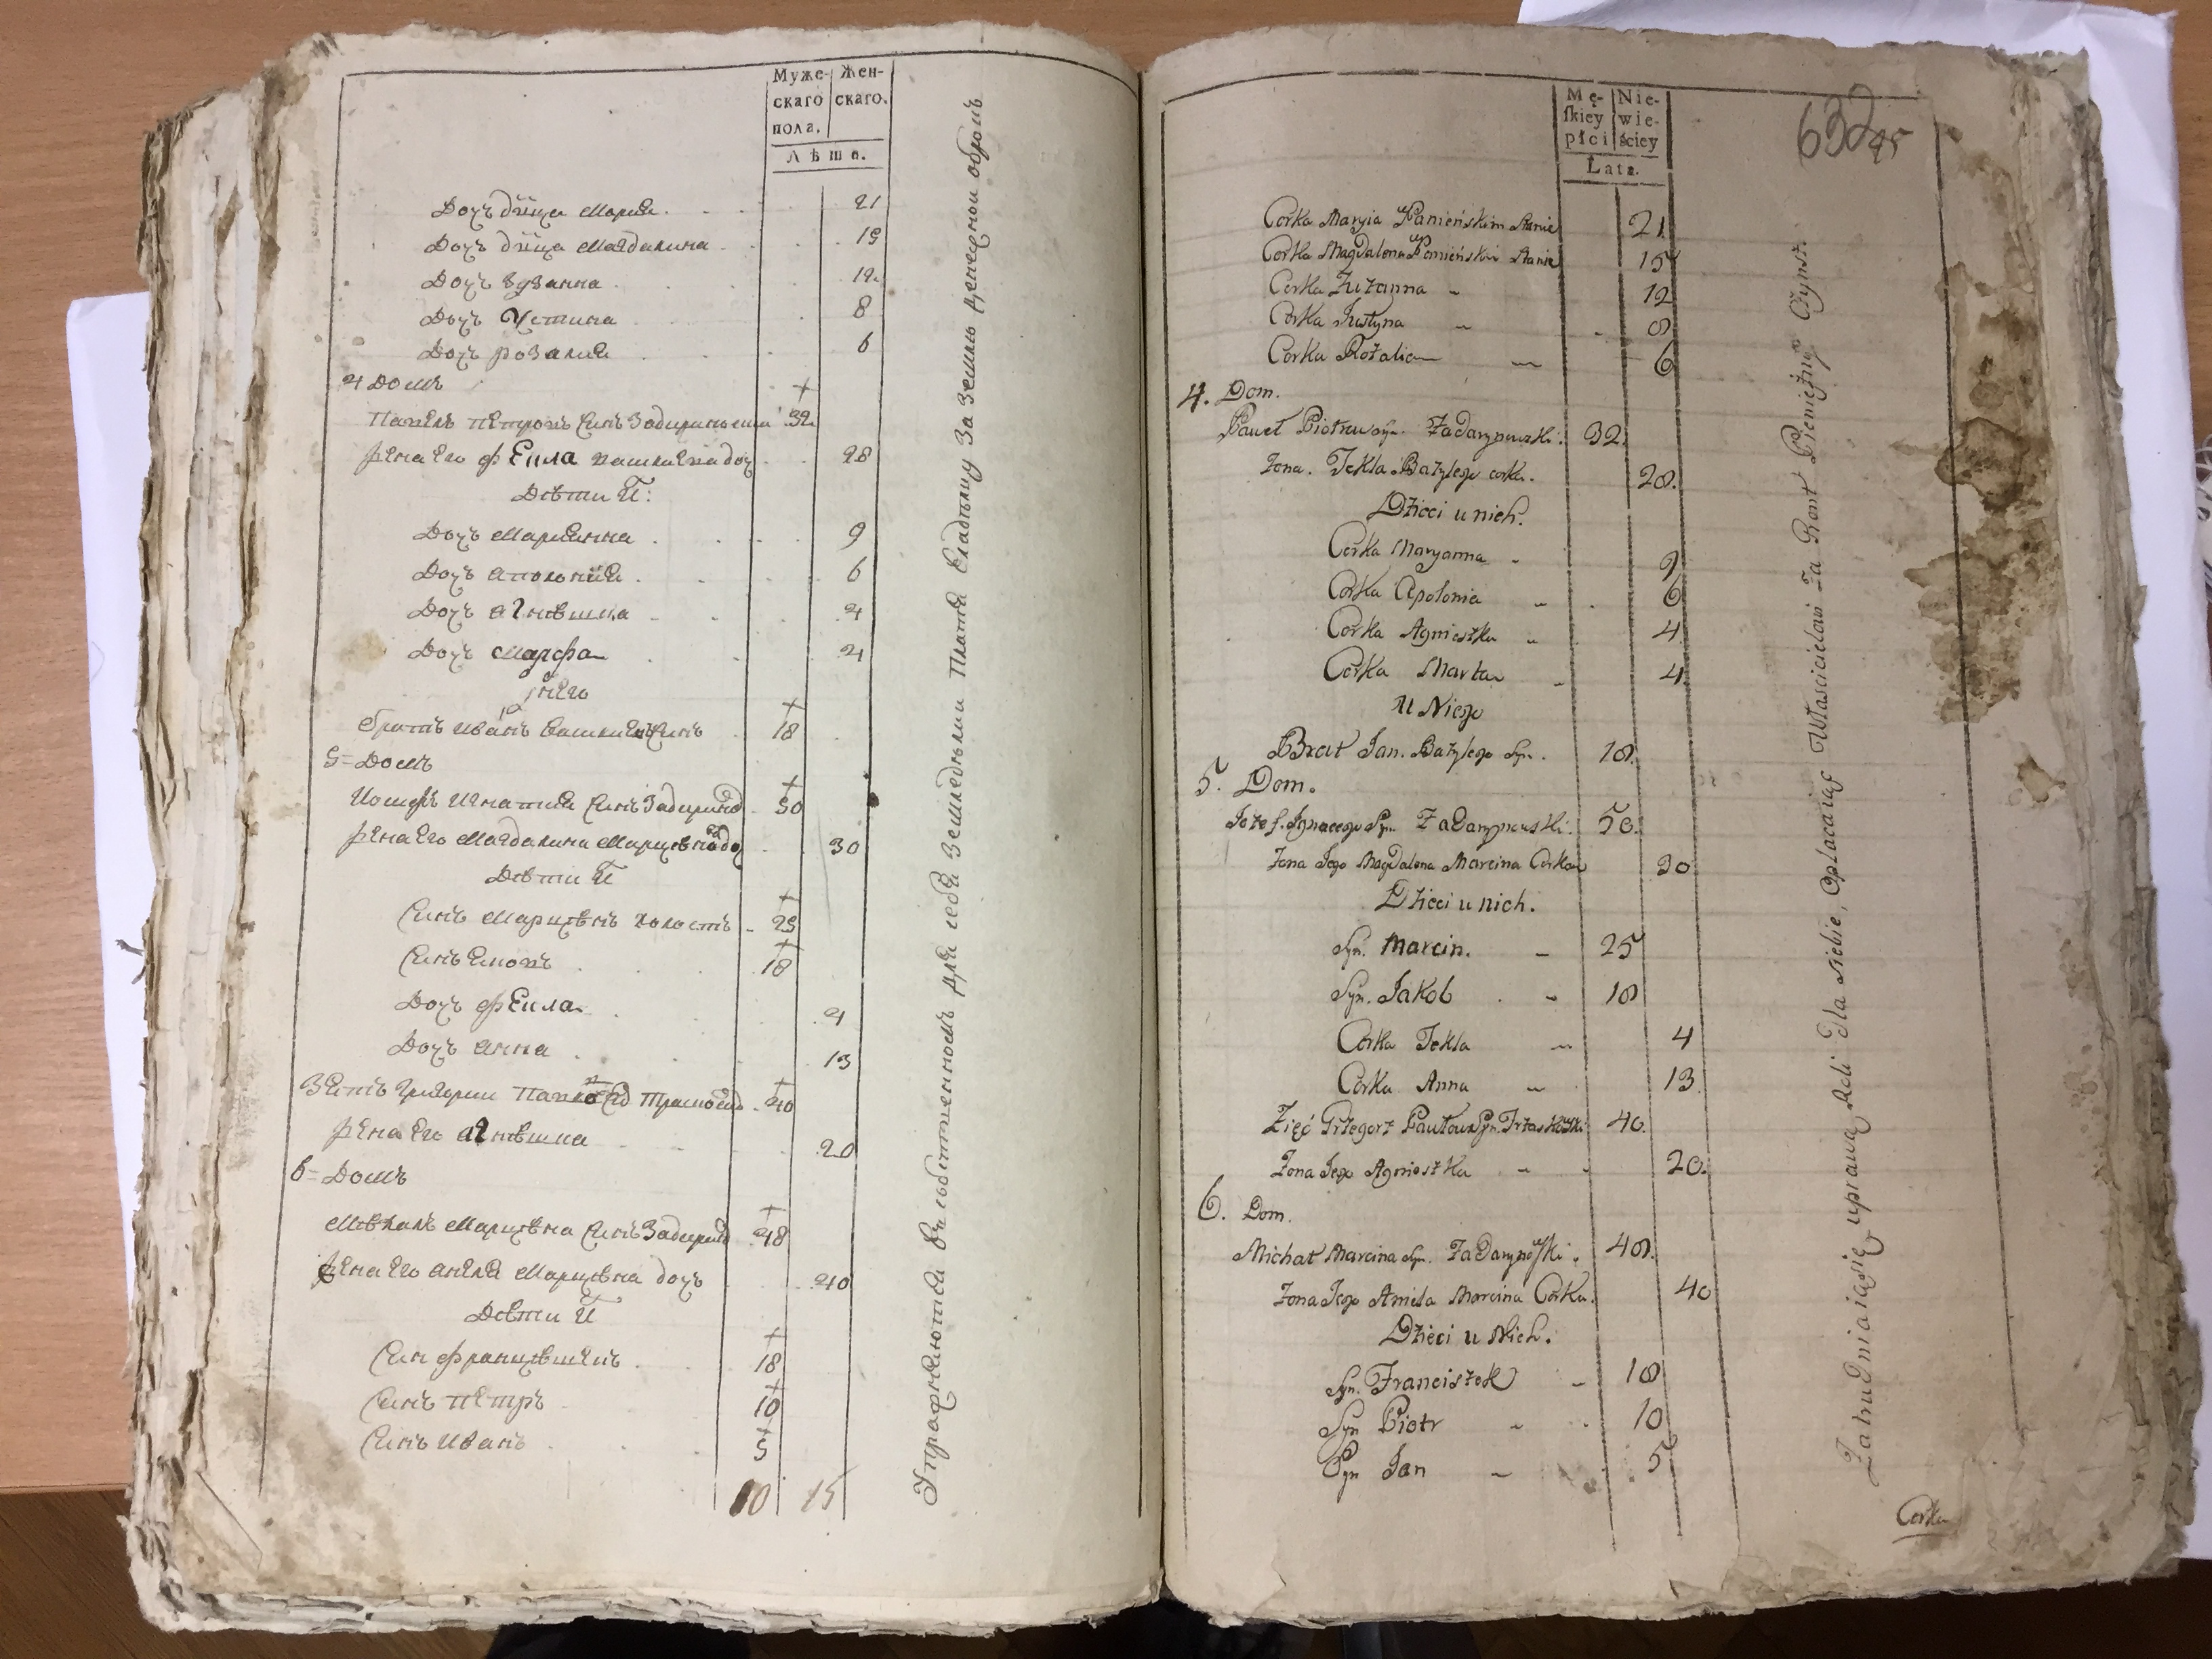 Муже- Жен-
скаго скаго.
пола.
Лѣта.
Дочъ дѣица Мария. 21
Дочъ дѣица Магдалина 15
Дочъ Зузанна 12
Дочъ Устина 8
Дочъ розалия 6
4 Домъ
Павелъ Петровъ синъ 32
Жена Его фекла дочъ 28
Дѣти Й:
Дочъ Марианна 9
Дочъ аполония 6
Дочъ агнѣшка 4
Дочъ Марфа 4
у него
братъ иванъ синъ 18
5 = Домъ
Иосифъ игнатия синъ 50
Жена Его Магдалина 30
Дѣти Й
Синъ Марцѣнъ холостъ 25
Синъ 18
Дочъ фекла 4
Дочъ анна 13
Зять григории 40
Жена Его агнѣшка 20
6 = Домъ
Мѣхалъ Марцѣна синъ 48
Жена Его анеля Марцѣна дочъ 40
Дѣти Й
Син францѣшекъ 18
Синъ петръ 10
Синъ иванъ 5
10 15
Упражняются въ собственномъ для себя земледѣлии платя владѣльцу за землю денежнои оброкъ
Mę- Nie-
ſkiey wie-
płci ściey
Lata.
632 95
Corka Maryia Panieńskim stanie 21
Corka Magdalena Panieńskim stanie 15
Corka Zuzanna 12
Corka Justyna 8
Corka Rozalia 6
4. Dom.
Paweł Piotrow syn Zadarynowski 32.
Zona. Tekla Bazylego corka. 28.
Dzieci u nich.
Corka Maryanna 9
Corka Apolonia 6
Corka Agnieszka 4
Corka Marta 4
U Niego
Brat Jan. Bazylego Syn. 18.
5. Dom.
Jozef. Ignacego Syn Zadarynowski 50.
Zona Jego Magdalena Marcina Corka 30
Dzieci u nich.
Syn. Marcin. 25
Syn. Jakob 18
Corka Tekla 4
Corka Anna 13
Zięć Grzegorz Pawłow Syn 40.
Zona Jego Agnieszka 20.
6. Dom.
Michał Marcina Syn. Zadarynowski. 48.
Zona Jego Aniela Marcina Corka. 40
Dzieci u Nich.
Syn. Franciszek 18
Syn Piotr 10
Syn Jan 5
Zatrudniaią się uprawą Roli dla siebie, Opłacaiąc Właścicielowi za Grunt Pieniężny Czynsz.
Corka